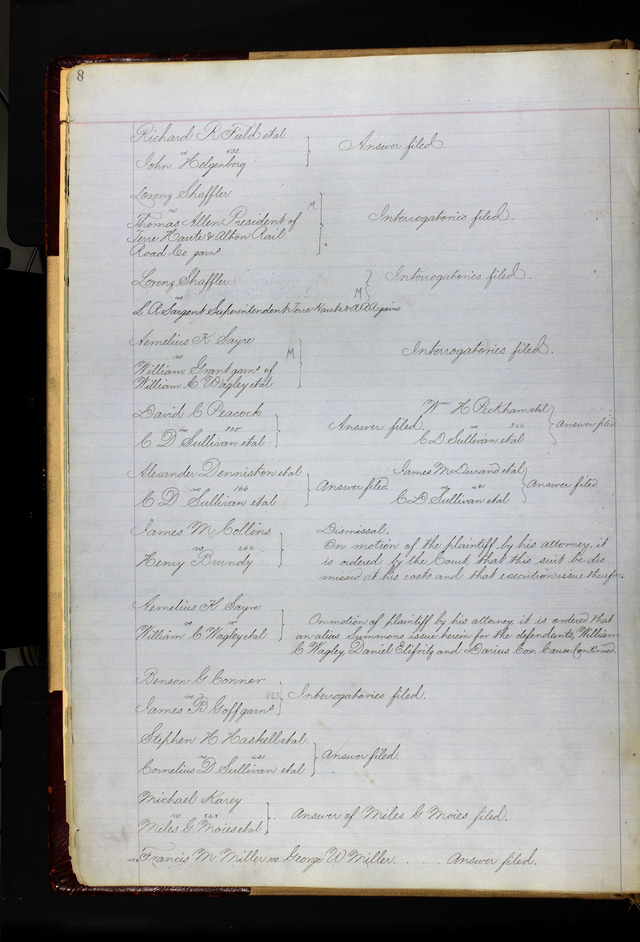 8
Richard R Field etal
vs
John Helgenberg
Answer filed.
Lorenz Shaffler
vs
Thomas Allen President of
Terre Haute & Alton Rail
Road Co garn^s
M
Interrogatories filed.
Lorenz Shaffler
vs
L A Sargent Superintendent Terre Haute & A R R garns
M
Interrogatories filed.
Aemelius K Sayre
vs
William Grant garn^s of
William C Wagley etal
M
Interrogatories filed.
David C Peacock
vs
C D Sullivan etal
Answer filed.
W^m H Peckham etal
vs
C D Sullivan etal
Answer filed
Alexander Denniston etal
vs
C D Sullivan etal
Answer filed
James M Durand etal
vs
C D Sullivan etal
Answer filed
James M Collins
vs
Henry Brundy
Dismissal.
On motion of the plaintiff by his attorney, it
is ordered by the Court, that this suit be dis
missed at his costs and that execution issue therefor.
Aemelius K Sayre
vs
William C Wagley etal
On motion of plaintiff by his attorney it is ordered that
an alias Summons issue herein for the defendants, William
C Wagley, Daniel Elifritz and Darius Cox. Cause Continued.
Benson G Connor
vs
James B Goff garn^s
Interrogatories filed.
Stephen H Haskell etal
vs
Cornelius D Sullivan etal
Answer filed.
Michael Karey
vs
Miles G Moies etal
Answer of Miles G Moies filed.
Francis M Miller vs George W Miller. . . . . Answer filed.